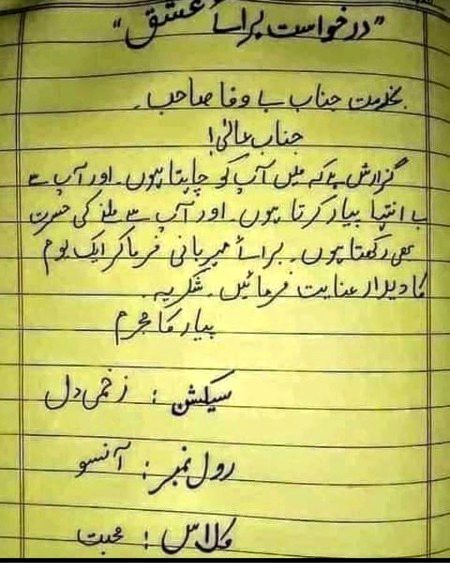 "درخواست برائے عشق"
بخدمت جناب بے وفا صاحب۔
جناب عالی!
گزارش ہے کہ میں آپ کو چاہتا ہوں۔ اور آپ سے
بے انتہا پیار کرتا ہوں۔ اور آپ سے ملنے کی حسرت
بھی رکھتا ہوں۔ برائے مہربانی فرما کر ایک یوم
کا دیدار عنایت فرمائیں۔ شکریہ۔
پیار کا مجرم
سیکشن: زخمی دل
رول نمبر: آنسو
کلاس: محبت